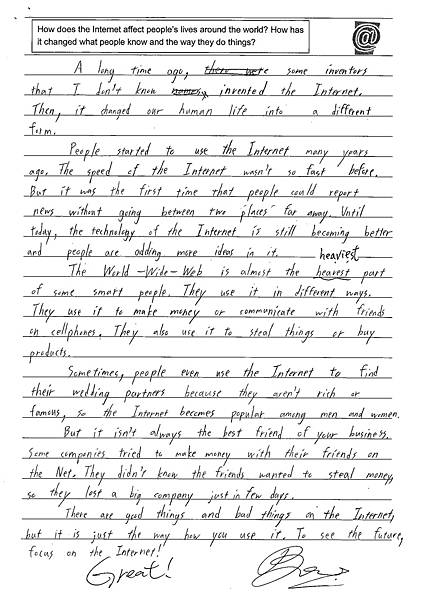 How does the Internet affect people's lives around the world? How has
it changed what people know and the way they do things?
@
A long time ago, there were some inventors
that I don't know names, invented the Internet.
Then, it changed our human life into a different
form.
People started to use the Internet many years
ago. The speed of the Internet wasn't so fast before.
But it was the first time that people could report
news without going between two places far away. Until
today, the technology of the Internet is still becoming better
and people are adding more ideas in it.
heaviest
The World-Wide-Web is almost the heavest part
of some smart people. They use it in different ways.
They use it to make money or communicate with friends
on cellphones. They also use it to steal things or buy
products.
Sometimes, people even use the Internet to find
their wedding partners because they aren't rich or
famous, so the Internet becomes popular among men and women.
But it isn't always the best friend of your business.
Some companies tried to make money with their friends on
the Net. They didn't know the friends wanted to steal money,
so they lost a big company just in few days.
There are good things and bad things on the Internet,
but it is just the way how you use it. To see the future,
focus on the Internet!
Great!